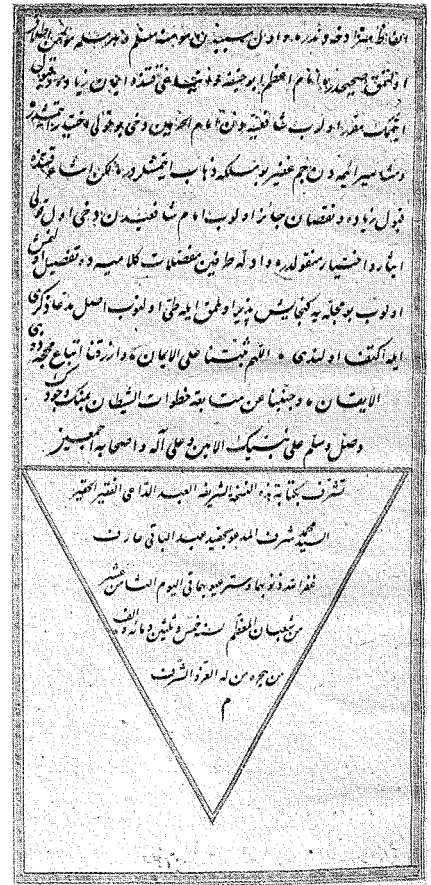 الفاظ مترادفه دندر و اول سببدن مؤمنه مسلم و هر مسلمه مؤمن اطلاق
اولنمق صحیحدر امام اعظم ابو حنیفه و
ایتمك مقرر اولوب شافعیه دن امام الحرمین دخی بو قولی اختیار ایتمشدر و
مشاهیر ائمه دن جم غفیر بو مسلكه ذهاب ایتمشلردر لكن
قبول زیاده و نقصان جائز اولوب امام شافعیدن دخی اول قولی
ایثار و اختیار منقولدر و ادله طرفین مفصلات كلامیه ده تفصیل
اولوب بو مجله یه كنجایش پذیر اولمامق ایله طی اولنوب اصل مدعا ذكری
ایله اكتفا اولندی اللهم ثبتنا علی الایمان وارزقنا اتباع محجة
الایقان وجنبنا عن متابعة خطوات الشیطان بمنك وجودك
وصل وسلم علی نبیك الامین وعلی آله واصحابه اجمعین
تشرف بكتابة هذه النسخة الشریفة العبد الداعی الفقیر الحقیر
السید محمد شرف المدعو بحفید عبد الباقی عارف
غفر الله ذنوبهما وستر عیوبهما فی الیوم الثامن عشر
من شعبان المعظم لسنة خمس وثلثین ومائة والف
من هجرة من له العز والشرف
م